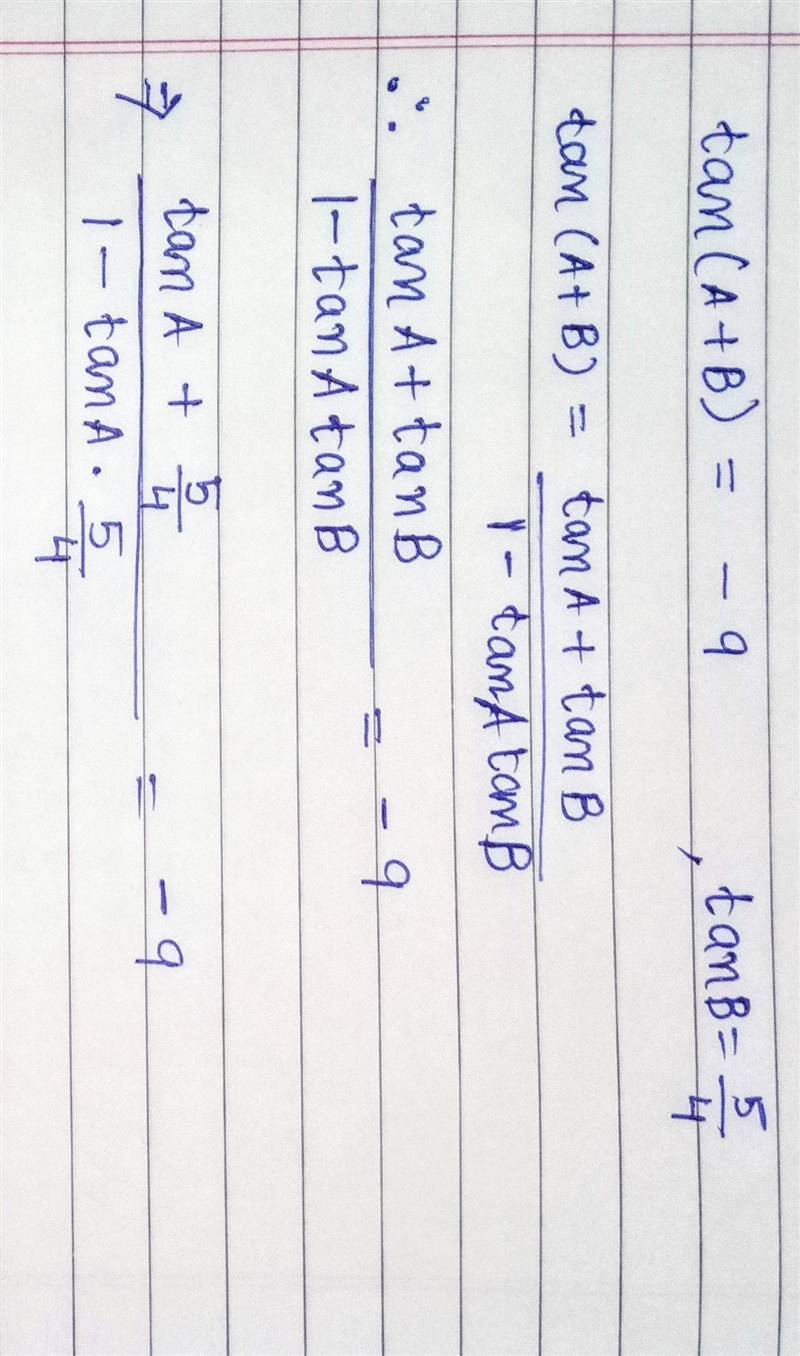 tan(A+B) = -9 , tanB = 5/4
tan(A+B) = tanA + tanB / 1 - tanA tanB
∴ tanA + tanB / 1 - tanA tanB = -9
⇒ tanA + 5/4 / 1 - tanA · 5/4 = -9